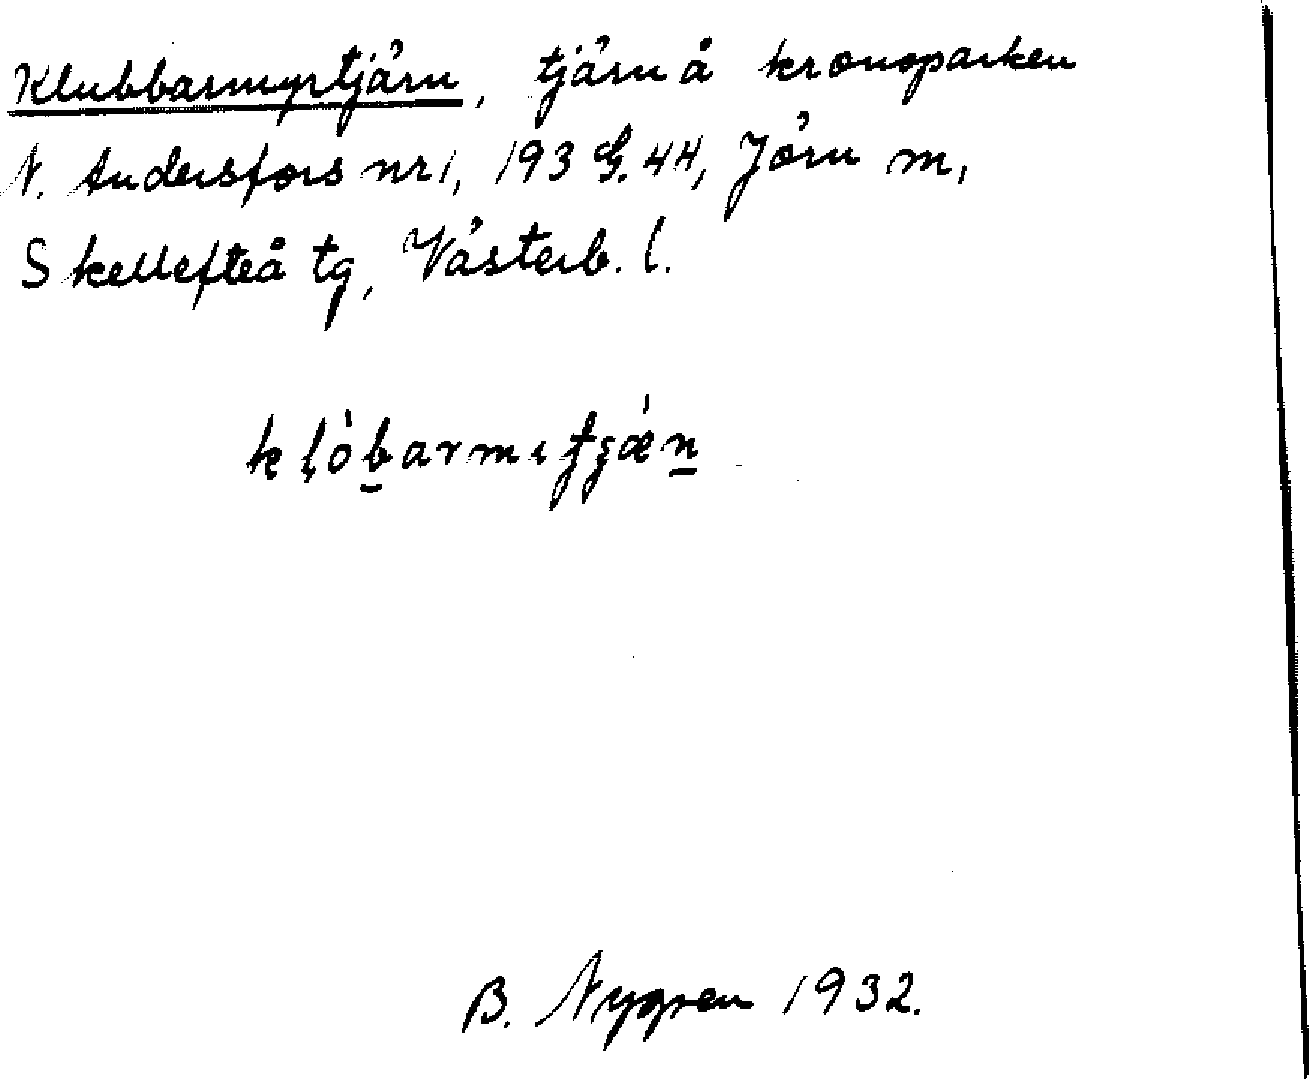 Klubbarmyrtjärn, tjärn å kronoparken
N. Andersfors nr 1, 193 G. 44, Jörn m,
Skellefteå tg, Västerb. l.
B. Nygren 1932.